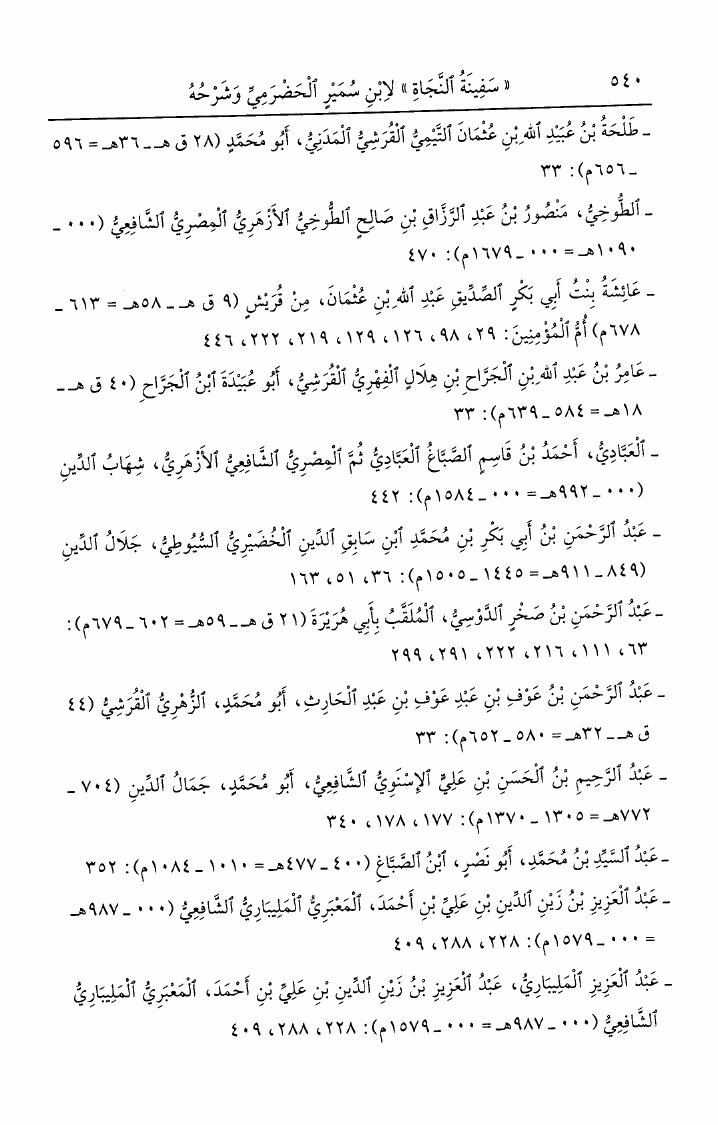 ٥٤٠ « سَفِينَةُ ٱلنَّجَاةِ » لِابْنِ سُمَيْرٍ ٱلْحَضْرَمِيِّ وَشَرْحُهُ
ـ طَلْحَةُ بْنُ عُبَيْدِ ٱللهِ بْنِ عُثْمَانَ ٱلتَّيْمِيُّ ٱلْقُرَشِيُّ ٱلْمَدَنِيُّ، أَبُو مُحَمَّدٍ (٢٨ ق هـ ـ ٣٦هـ = ٥٩٦
ـ ٦٥٦م): ٣٣
ـ ٱلطُّوخِيُّ، مَنْصُورُ بْنُ عَبْدِ ٱلرَّزَّاقِ بْنِ صَالِحٍ ٱلطُّوخِيُّ ٱلأَزْهَرِيُّ ٱلْمِصْرِيُّ ٱلشَّافِعِيُّ (٠٠٠ ـ
١٠٩٠هـ = ٠٠٠ ـ ١٦٧٩م): ٤٧٠
ـ عَائِشَةُ بِنْتُ أَبِي بَكْرٍ ٱلصِّدِّيقِ عَبْدِ ٱللهِ بْنِ عُثْمَانَ، مِنْ قُرَيْشٍ (٩ ق هـ ـ ٥٨هـ = ٦١٣ ـ
٦٧٨م) أُمُّ ٱلْمُؤْمِنِينَ: ٢٩، ٩٨، ١٢٦، ١٢٩، ٢١٩، ٢٢٢، ٤٤٦
ـ عَامِرُ بْنُ عَبْدِ ٱللهِ بْنِ ٱلْجَرَّاحِ بْنِ هِلَالٍ ٱلْفِهْرِيُّ ٱلْقُرَشِيُّ، أَبُو عُبَيْدَةَ ٱبْنُ ٱلْجَرَّاحِ (٤٠ ق هـ ـ
١٨هـ = ٥٨٤ ـ ٦٣٩م): ٣٣
ـ ٱلْعَبَّادِيُّ، أَحْمَدُ بْنُ قَاسِمٍ ٱلصَّبَّاغُ ٱلْعَبَّادِيُّ ثُمَّ ٱلْمِصْرِيُّ ٱلشَّافِعِيُّ ٱلأَزْهَرِيُّ، شِهَابُ ٱلدِّينِ
(٠٠٠ ـ ٩٩٢هـ = ٠٠٠ ـ ١٥٨٤م): ٤٤٢
ـ عَبْدُ ٱلرَّحْمَنِ بْنُ أَبِي بَكْرِ بْنِ مُحَمَّدِ ٱبْنِ سَابِقِ ٱلدِّينِ ٱلْخُضَيْرِيُّ ٱلسُّيُوطِيُّ، جَلَالُ ٱلدِّينِ
(٨٤٩ ـ ٩١١هـ = ١٤٤٥ ـ ١٥٠٥م): ٣٦، ٥١، ١٦٣
ـ عَبْدُ ٱلرَّحْمَنِ بْنُ صَخْرٍ ٱلدَّوْسِيُّ، ٱلْمُلَقَّبُ بِأَبِي هُرَيْرَةَ (٢١ ق هـ ـ ٥٩هـ = ٦٠٢ ـ ٦٧٩م):
٦٣، ١١١، ٢١٦، ٢٢٢، ٢٩١، ٢٩٩
ـ عَبْدُ ٱلرَّحْمَنِ بْنُ عَوْفِ بْنِ عَبْدِ عَوْفِ بْنِ عَبْدِ ٱلْحَارِثِ، أَبُو مُحَمَّدٍ، ٱلزُّهْرِيُّ ٱلْقُرَشِيُّ (٤٤
ق هـ ـ ٣٢هـ = ٥٨٠ ـ ٦٥٢م): ٣٣
ـ عَبْدُ ٱلرَّحِيمِ بْنُ ٱلْحَسَنِ بْنِ عَلِيٍّ ٱلإِسْنَوِيُّ ٱلشَّافِعِيُّ، أَبُو مُحَمَّدٍ، جَمَالُ ٱلدِّينِ (٧٠٤ ـ
٧٧٢هـ = ١٣٠٥ ـ ١٣٧٠م): ١٧٧، ١٧٨، ٣٤٠
ـ عَبْدُ ٱلسَّيِّدِ بْنُ مُحَمَّدٍ، أَبُو نَصْرٍ، ٱبْنُ ٱلصَّبَّاغِ (٤٠٠ ـ ٤٧٧هـ = ١٠١٠ ـ ١٠٨٤م): ٣٥٢
ـ عَبْدُ ٱلْعَزِيزِ بْنُ زَيْنِ ٱلدِّينِ بْنِ عَلِيِّ بْنِ أَحْمَدَ، ٱلْمَعْبَرِيُّ ٱلْمَلِيبَارِيُّ ٱلشَّافِعِيُّ (٠٠٠ ـ ٩٨٧هـ
= ٠٠٠ ـ ١٥٧٩م): ٢٢٨، ٢٨٨، ٤٠٩
ـ عَبْدُ ٱلْعَزِيزِ ٱلْمَلِيبَارِيُّ، عَبْدُ ٱلْعَزِيزِ بْنُ زَيْنِ ٱلدِّينِ بْنِ عَلِيِّ بْنِ أَحْمَدَ، ٱلْمَعْبَرِيُّ ٱلْمَلِيبَارِيُّ
ٱلشَّافِعِيُّ (٠٠٠ ـ ٩٨٧هـ = ٠٠٠ ـ ١٥٧٩م): ٢٢٨، ٢٨٨، ٤٠٩